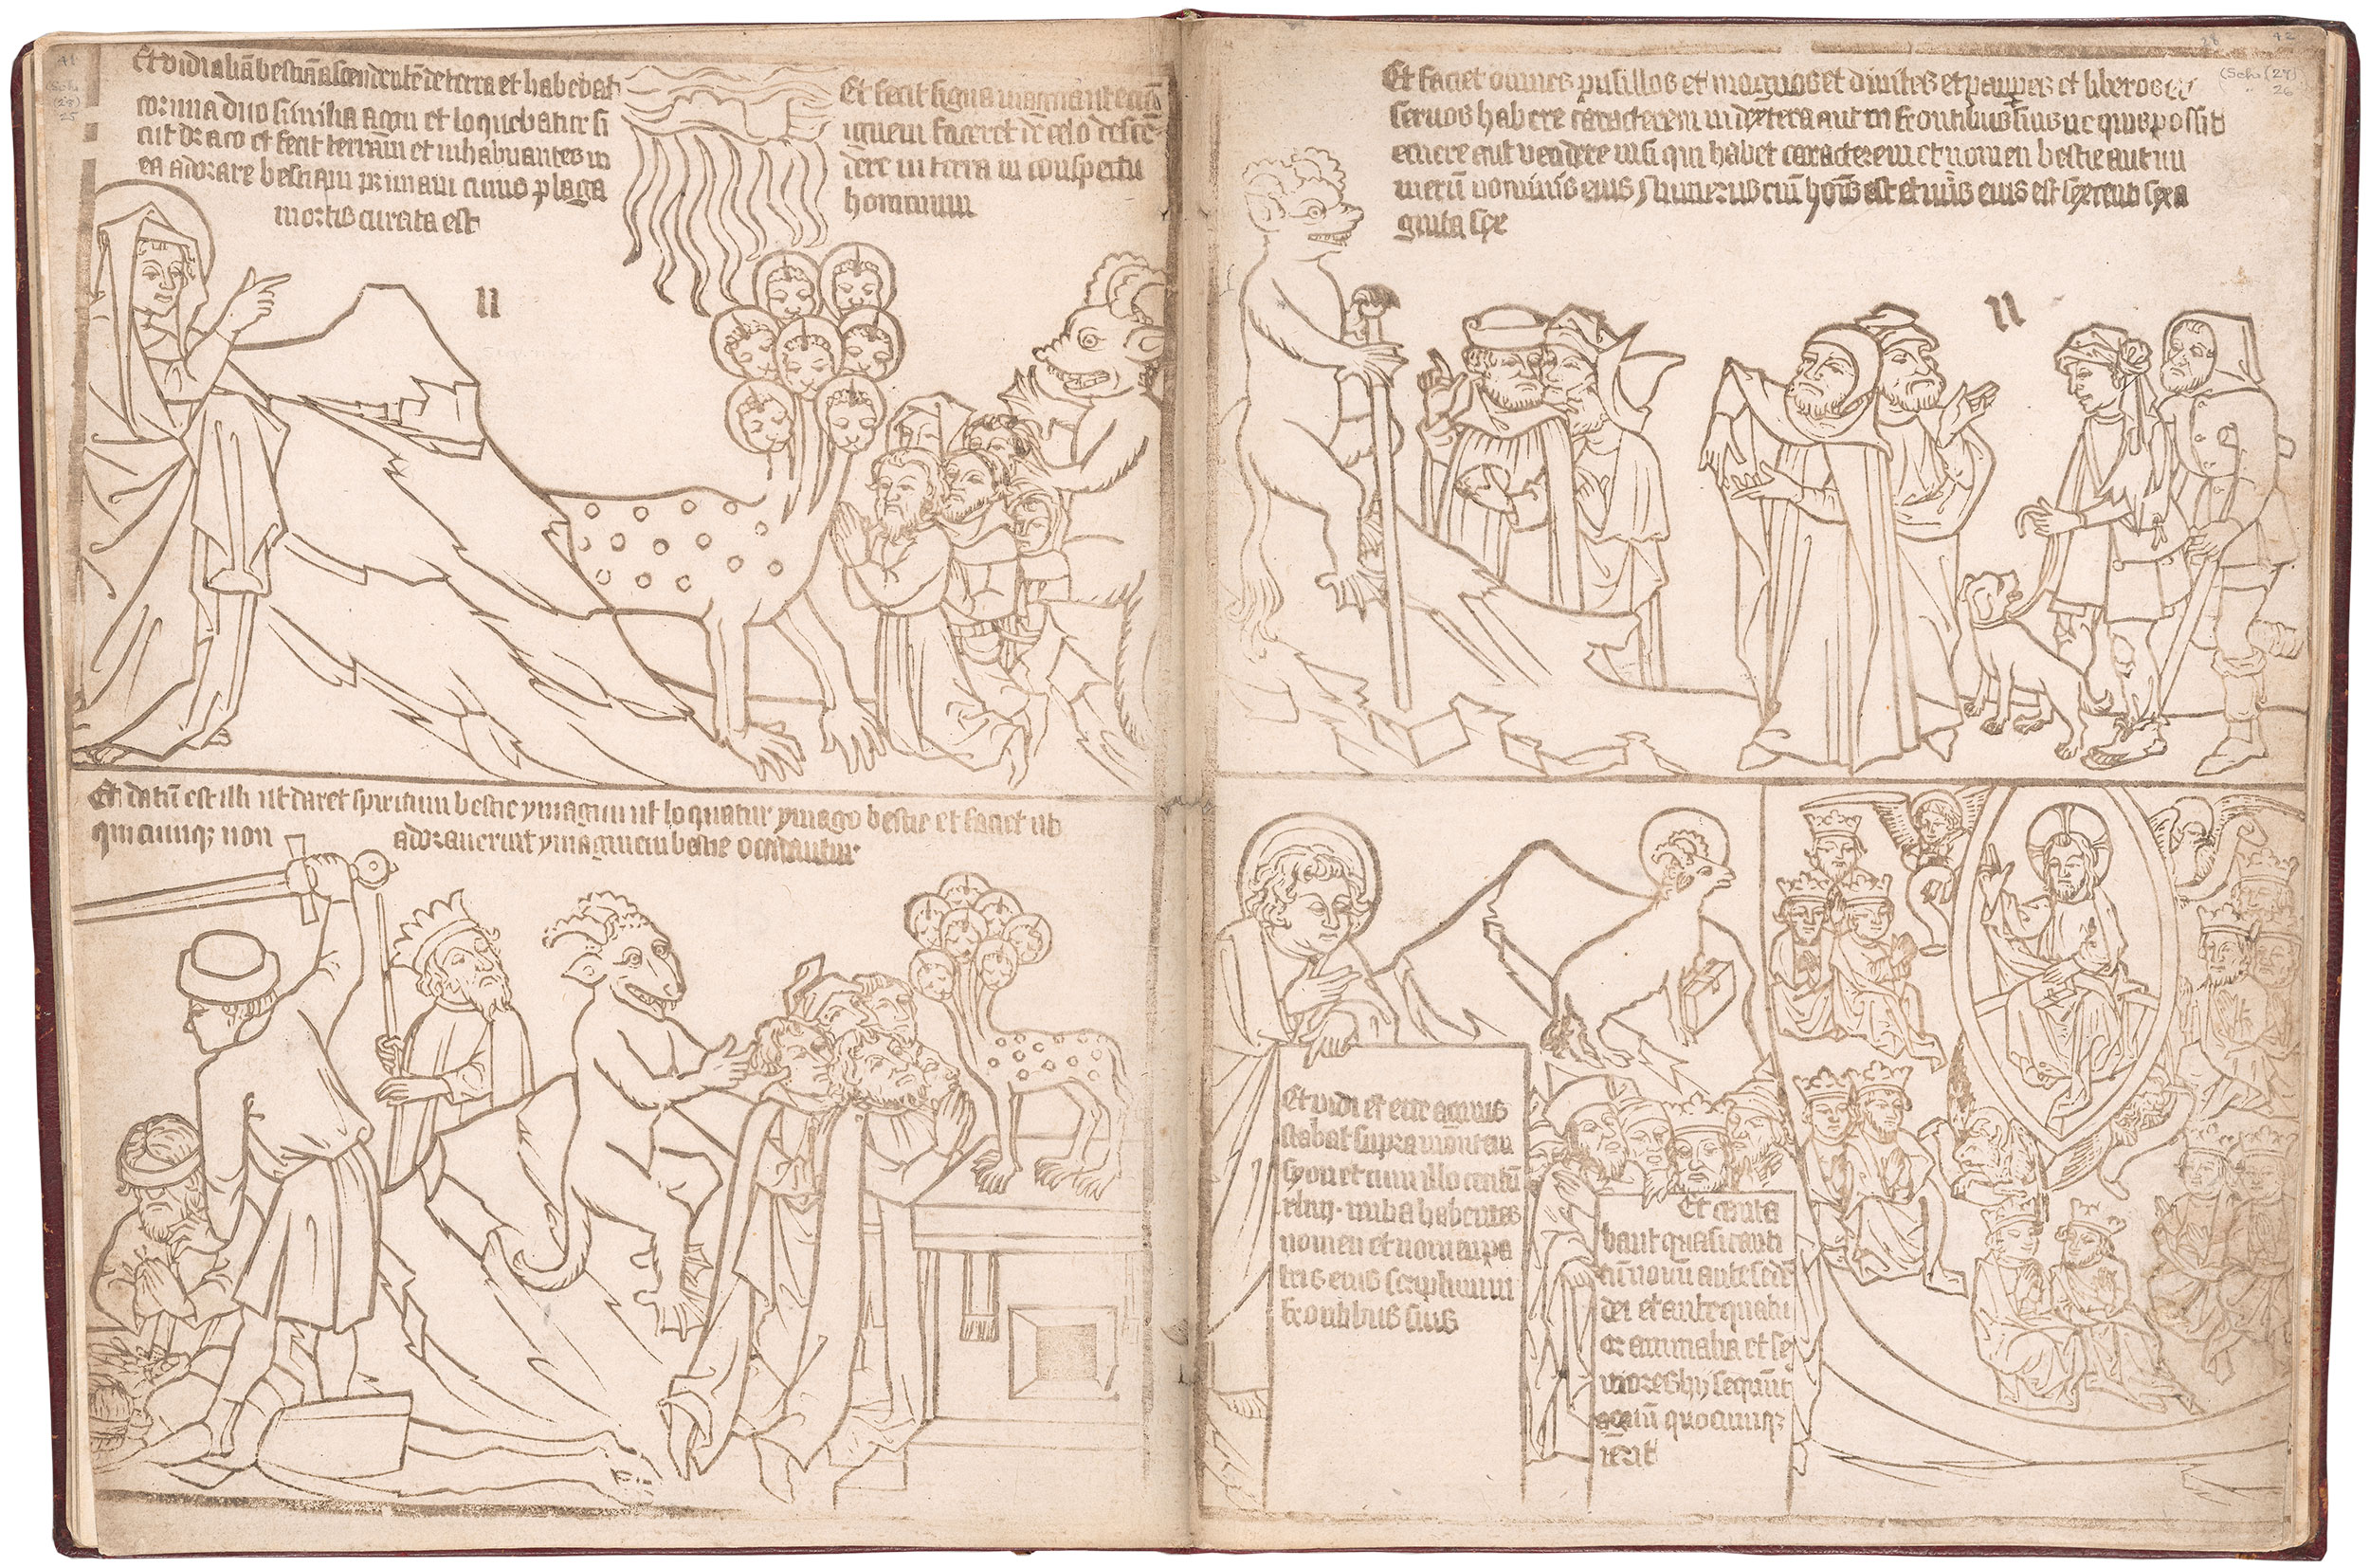 Et vidi aliā bestiā ascendentē de terra et habebat
cornua duo similia agni et loquebatur si
cut draco et fecit terram et inhabitantes in
ea adorare bestiam primam cuius plaga
mortis curata est
Et fecit signa magna ut eciā
ignem faceret de celo descē
dere in terra in conspectu
hominum
11
Et datū est illi ut daret spiritum bestie ymagini ut loquatur ymago bestie et faciet ut
quicunqz non adoraverint ymaginem bestie occidantur
Et faciet omnes pusillos et magnos et divites et paupes et liberos et
servos habere caracterem in dextera aut in frontibus suis ne quis possit
emere aut vendere nisi qui habet caracterem et nomen bestie aut nu
merū nominis eius numerus hoīs est et eius est sexcenti sexa
ginta sex
11
Et vidi et ecce agnus
stabat supra montem
syon et cum illo centū
milia habentes
nomen et nomen pa
tris eius scriptum
frontibus suis
Et canta
bant quasi canti
cū novū ante sedē
dei et ante quatu
or animalia et se
niores hy sequūt
agnū quocunqz
ierit
41
(Sch.
25
42
(Sch. (27)
26